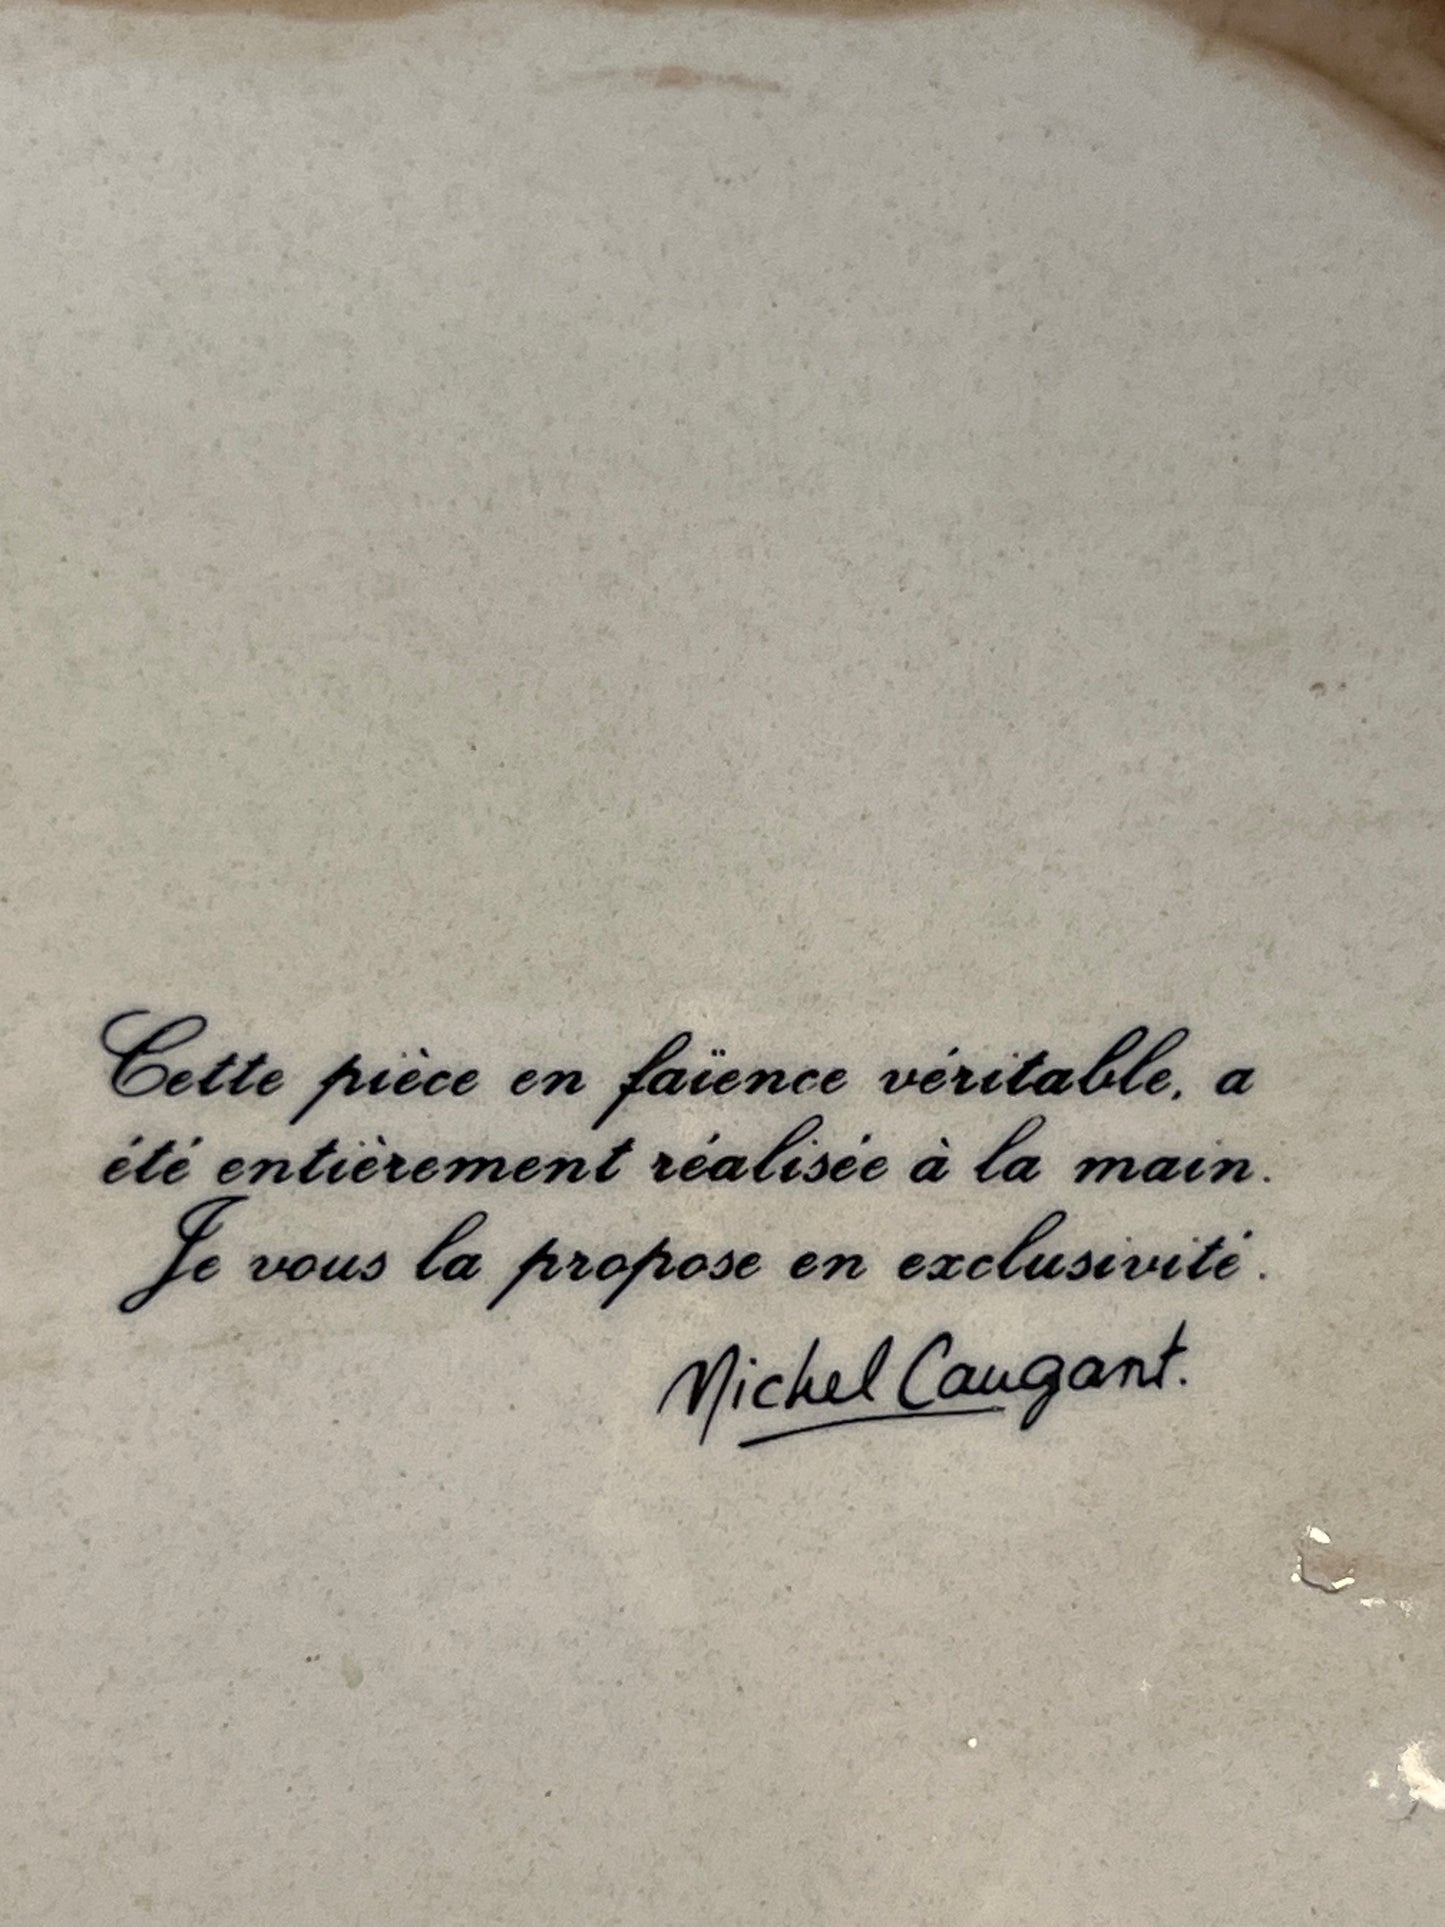 Cette pièce en faïence véritable, a
été entièrement réalisée à la main.
Je vous la propose en exclusivité.
Michel Caugant.